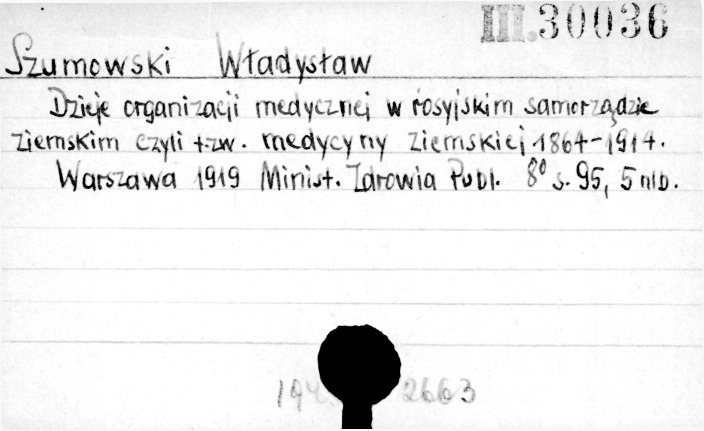 III. 30036
Szumowski Władysław
Dzieje organizacji medycznej w rosyjskim samorządzie
ziemskim czyli t.zw. medycyny ziemskiej 1864-1914.
Warszawa 1919 Minist. Zdrowia Publ. 8⁰ s. 95, 5 nlb.
2663